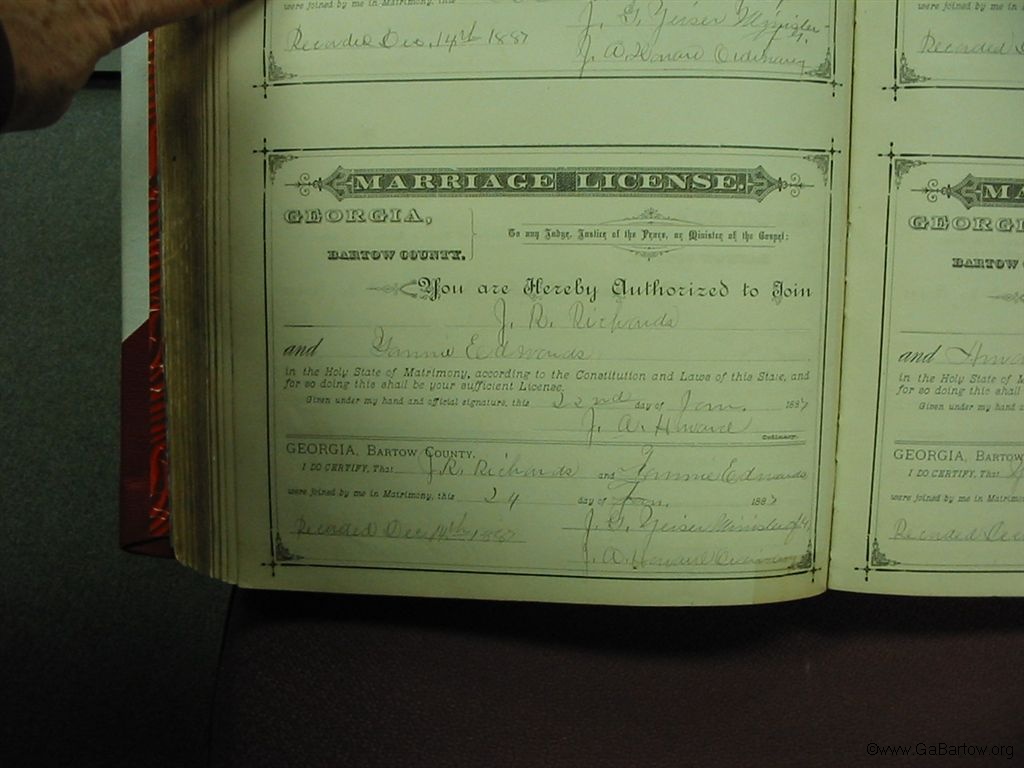 were joined by me in Matrimony, this
J. G. Yeiser Minister
Recorded Dec. 14th 1887
J. A. Howard Ordinary
MARRIAGE LICENSE.
GEORGIA,
BARTOW COUNTY.
To any Judge, Justice of the Peace, or Minister of the Gospel:
You are Hereby Authorized to Join
J. R. Richards
and Fannie Edwards
in the Holy State of Matrimony, according to the Constitution and Laws of this State, and
for so doing this shall be your sufficient License.
Given under my hand and official signature, this 22nd day of Jan. 1887
J. A. Howard
Ordinary.
GEORGIA, BARTOW COUNTY.
I DO CERTIFY, That J. R. Richards and Fannie Edwards
were joined by me in Matrimony, this 24 day of Jan. 1887
J. G. Yeiser Minister of G
Recorded Dec. 14th 1887
J. A. Howard Ordinary
were joined by me in
Recorded
MA
GEORGI
BARTOW
and
in the Holy State of M
for so doing this shall
Given under my hand and
GEORGIA, BARTOW
I DO CERTIFY, That
were joined by me in Matrimon
Recorded Dec
©www.GaBartow.org